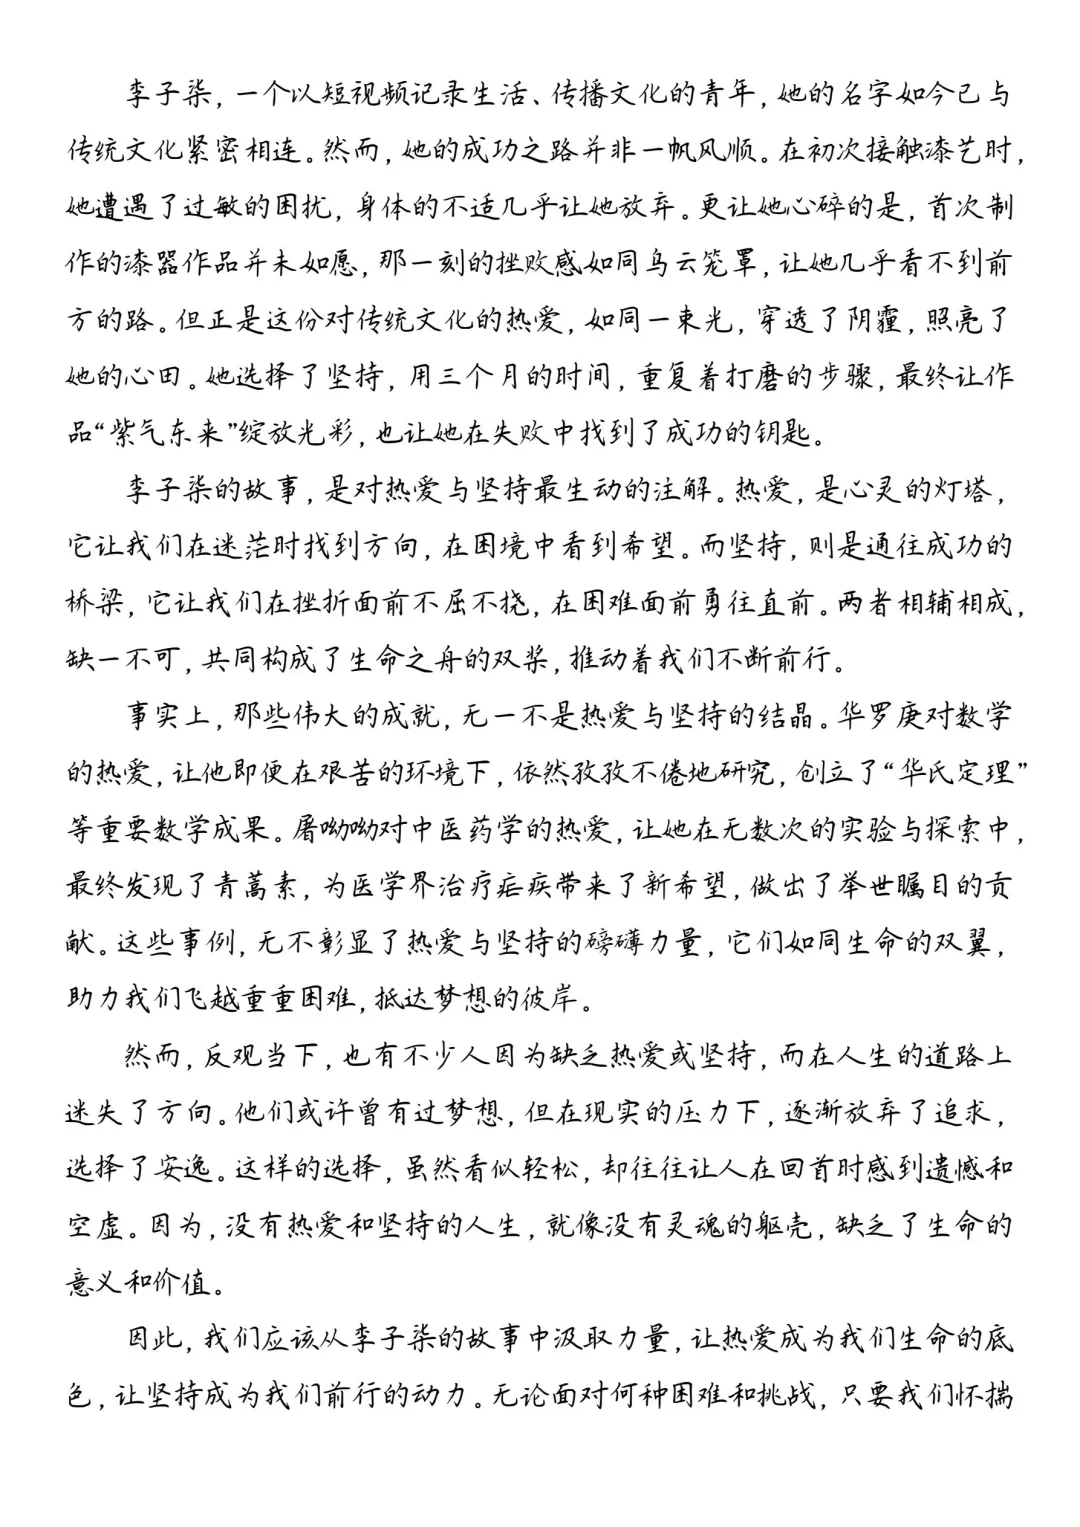 李子柒，一个以短视频记录生活、传播文化的青年，她的名字如今已与
传统文化紧密相连。然而，她的成功之路并非一帆风顺。在初次接触漆艺时，
她遭遇了过敏的困扰，身体的不适几乎让她放弃。更让她心碎的是，首次制
作的漆器作品并未如愿，那一刻的挫败感如同乌云笼罩，让她几乎看不到前
方的路。但正是这份对传统文化的热爱，如同一束光，穿透了阴霾，照亮了
她的心田。她选择了坚持，用三个月的时间，重复着打磨的步骤，最终让作
品“紫气东来”绽放光彩，也让她在失败中找到了成功的钥匙。
李子柒的故事，是对热爱与坚持最生动的注解。热爱，是心灵的灯塔，
它让我们在迷茫时找到方向，在困境中看到希望。而坚持，则是通往成功的
桥梁，它让我们在挫折面前不屈不挠，在困难面前勇往直前。两者相辅相成，
缺一不可，共同构成了生命之舟的双桨，推动着我们不断前行。
事实上，那些伟大的成就，无一不是热爱与坚持的结晶。华罗庚对数学
的热爱，让他即便在艰苦的环境下，依然孜孜不倦地研究，创立了“华氏定理”
等重要数学成果。屠呦呦对中医药学的热爱，让她在无数次的实验与探索中，
最终发现了青蒿素，为医学界治疗疟疾带来了新希望，做出了举世瞩目的贡
献。这些事例，无不彰显了热爱与坚持的磅礴力量，它们如同生命的双翼，
助力我们飞越重重困难，抵达梦想的彼岸。
然而，反观当下，也有不少人因为缺乏热爱或坚持，而在人生的道路上
迷失了方向。他们或许曾有过梦想，但在现实的压力下，逐渐放弃了追求，
选择了安逸。这样的选择，虽然看似轻松，却往往让人在回首时感到遗憾和
空虚。因为，没有热爱和坚持的人生，就像没有灵魂的躯壳，缺乏了生命的
意义和价值。
因此，我们应该从李子柒的故事中汲取力量，让热爱成为我们生命的底
色，让坚持成为我们前行的动力。无论面对何种困难和挑战，只要我们怀揣